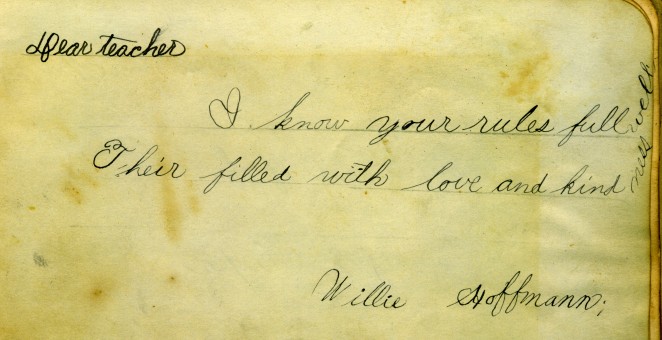 Dear teacher
I know your rules full well
Their filled with love and kind ness
Willie Hoffmann;